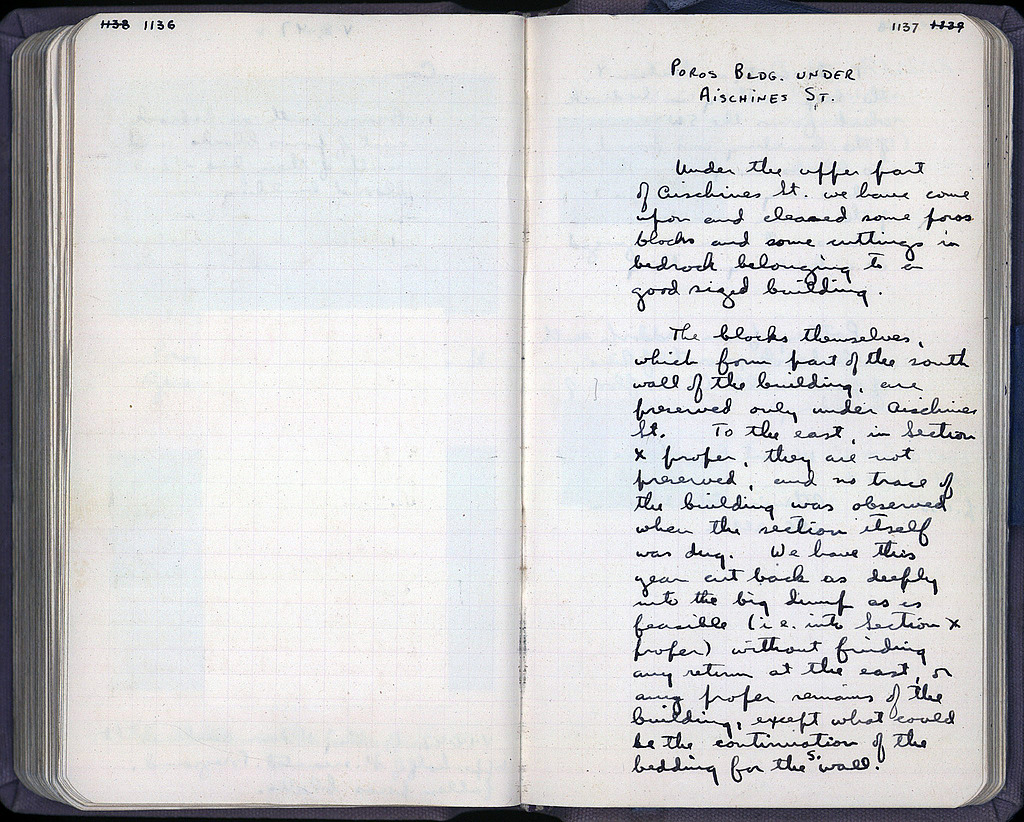 1138 1136
1137 1339
POROS BLDG. UNDER
AISCHINES ST.
Under the upper part
of Aischines St. we have come
upon and cleaned some poros
blocks and some cuttings in
bedrock belonging to a
good sized building.
The blocks themselves,
which form part of the south
wall of the building, are
preserved only under Aischines
St. To the east, in Section
X proper, they are not
preserved, and no trace of
the building was observed
when the section itself
was dug. We have this
year cut back as deeply
into the big dump as is
feasible (i.e. into Section X
proper) without finding
any return at the east, or
any proper remains of the
building, except what could
be the continuation of the
bedding for the S. wall.